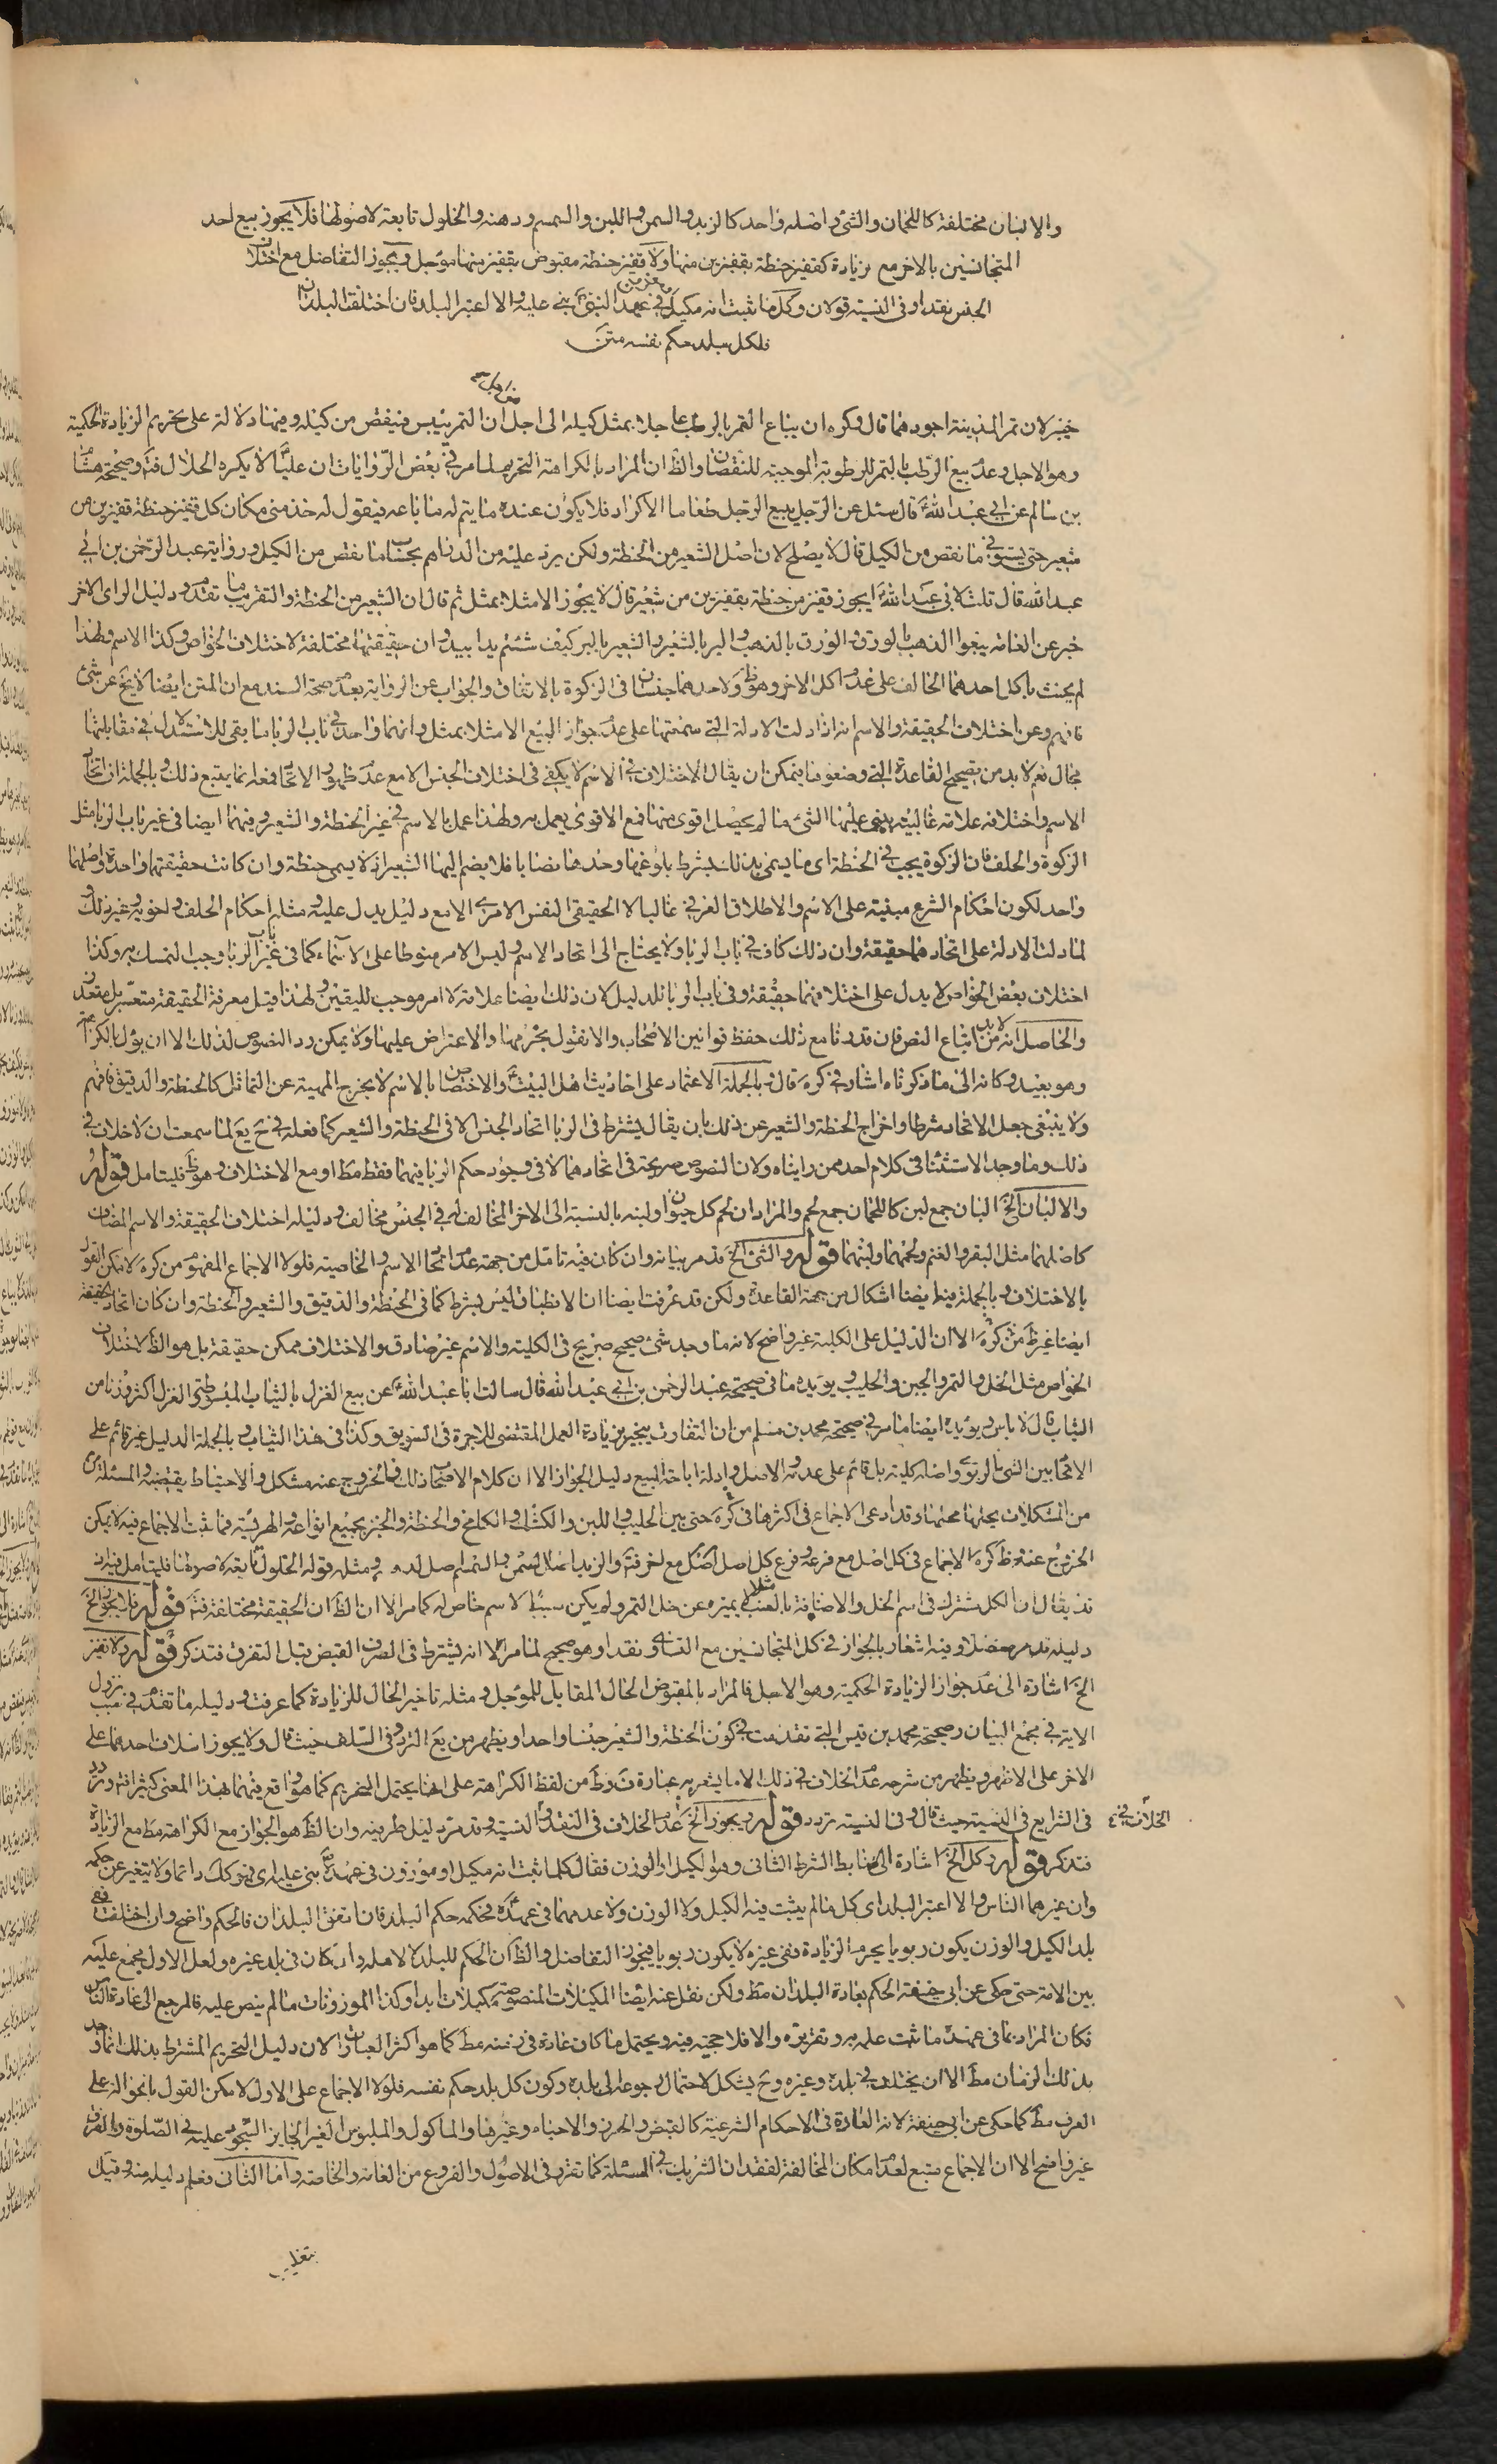 والالبان مختلفة كاللحمان والشئ واصله واحد كالزبد والسمن واللبن والسمسم ودهنه والخلول تابعة لاصولها فلا يجوز بيع احد
المتجانسين بالاخر مع زيادة كقفيز حنطة بقفيزين منها ولا قفيز حنطة مقبوض بقفيز منها مؤجل ويجوز التفاضل مع اختلاف
الجنس نقدا وفى النسية قولان وكل ما ثبت انه مكيل فى عهد النبى بنى عليه والا اعتبر البلد فان اختلفت البلدان
فلكل بلد حكم نفسه متن
خيبر لان تمر المدينة اجودهما قال وكره ان يباع التمر بالرطب عاجلا بمثل كيله الى اجل ان التمر ييبس فينقص من كيله وفيها دلالة على تحريم الزيادة الحكمية
وهو الاجل وعدم بيع الرطب بالتمر للرطوبة الموجبة للنقصان والظ ان المراد بالكراهة التحريم لما مر فى بعض الروايات ان عليا لا يكره الحلال فت وصحيحة هشام
بن سالم عن ابى عبد الله قال سئل عن الرجل يبيع الرجل طعاما الاكرار فلا يكون عنده ما يتم له ما باعه فيقول له خذ منى مكان كل قفيز حنطة قفيزين من
شعير حتى يستوفى ما نقص من الكيل قال لا يصلح لان اصل الشعير من الحنطة ولكن يرد عليه من الدراهم بحساب ما نقص من الكيل ورواية عبد الرحمن بن ابى
عبد الله قال قلت لابى عبد الله ايجوز قفيز من حنطة بقفيزين من شعير قال لا يجوز الا مثلا بمثل ثم قال ان الشعير من الحنطة والتقريب ما تقدم ودليل الراى الاخر
خبر عن العامة بيعوا الذهب بالورق والورق بالذهب والبر بالشعير والشعير بالبر كيف شئتم يدا بيد وان حقيقتهما مختلفة لاختلاف الخواص وكذا الاسم ولهذا
لم يحنث باكل احدهما الحالف على عدم اكل الاخر وهو ظ ولاحدهما جنسان فى الزكوة بالاتفاق والجواب عن الرواية بعدم صحة السند مع ان المتن ايضا لا يخ عن شئ
فافهم وعن اختلاف الحقيقة والاسم انه اذا دلت الادلة التى سمعتها على عدم جواز البيع الا مثلا بمثل وانهما واحد فى باب الربا ما بقى للاستدلال فى مقابلتها
مجال نعم لا بد من تصحيح القاعدة التى وضعوها فيمكن ان يقال الاختلاف فى الاسم لا يكفى فى اختلاف الجنس الا مع عدم ظهور الاتحاد فعله انما يتبع ذلك وبالجملة ان اتحاد
الاسم واختلافه علامة غالبية يبنى عليها الشئ ما لم يحصل اقوى منها فمع الاقوى يعمل به ولهذا عمل بالاسم فى غير الحنطة والشعير وفيهما ايضا فى غير باب الربا مثل
الزكوة والحلف فان الزكوة يجب فى الحنطة اى ما يسمى بذلك بشرط بلوغها وحدها نصابا فلا يضم اليها الشعير اذ لا يسمى حنطة وان كانت حقيقتهما واحدة واصلهما
واحد لكون احكام الشرع مبنية على الاسم والاطلاق العرفى غالبا لا الحقيقى النفس الامرى الا مع دليل يدل عليه ومثله احكام الحلف ونحوه وغير ذلك
لما دلت الادلة على اتحادهما حقيقة وان ذلك كاف فى باب الربا ولا يحتاج الى اتحاد الاسم وليس الامر منوطا على الاسماء كما فى غير باب الربا وجب التمسك به وكذا
اختلاف بعض الخواص لا يدل على اختلافهما حقيقة وفى باب الربا للدليل لان ذلك ايضا علامة لا امر موجب لليقين ولهذا قيل معرفة الحقيقة متعسر بل متعذر
والحاصل انه لا بد من اتباع النص فان قدرنا مع ذلك حفظ قوانين الاصحاب والا نقول بخرمها والاعتراض عليها ولا يمكن رد النصوص لذلك الا ان يؤل بالكراهة
وهو بعيد وكانه الى ما ذكرناه اشار فى كره قال وبالجملة الاعتماد على احاديث اهل البيت والاختصاص بالاسم لا يخرج المهية عن التماثل كالحنطة والدقيق فافهم
ولا ينبغى جعل الاتحاد شرطا واخراج الحنطة والشعير عن ذلك بان يقال يشترط فى الربا اتحاد الجنس الا فى الحنطة والشعير كما فعله فى يع لما سمعت ان لا خلاف فى
ذلك وما وجد الاستثناء فى كلام احد ممن رايناه ولان النصوص صريحة فى اتحادهما لا فى وجود حكم الربا فيهما فقط مط او مع الاختلاف وهو ظ فليتامل قوله
والالبان الخ البان جمع لبن كاللحمان جمع لحم والمراد ان لحم كل حيوان ولبنه بالنسبة الى الاخر المخالف له فى الجنس مخالف ودليله اختلاف الحقيقة والاسم المضاف
كاصلهما مثل البقر والغنم ولحمهما ولبنهما قوله والشئ الخ قد مر بيانه وان كان فيه تامل من جهة عدم اتحاد الاسم والخاصية فلولا الاجماع المفهوم من كره لامكن القول
بالاختلاف وبالجملة فيه ايضا اشكال من جهة القاعدة ولكن قد عرفت ايضا ان الانطباق ليس بشرط كما فى الحنطة والدقيق والشعير والحنطة وان كان اتحاد الحقيقة
ايضا غير ظ من كره الا ان الدليل على الكلية غير واضح لانه ما وجد شئ صحيح صريح فى الكلية والاسم غير صادق والاختلاف ممكن حقيقة بل هو الظ لاختلاف
الخواص مثل الخل والتمر والجبن والحليب ويؤيده ما فى صحيحة عبد الرحمن بن ابى عبد الله قال سالت ابا عبد الله عن بيع الغزل بالثياب المبسوطة والغزل اكثر وزنا من
الثياب قال لا باس ويؤيده ايضا ما مر فى صحيحة محمد بن مسلم من ان التفاوت يجبر بزيادة العمل المقتضى للاجرة فى السويق وكذا فى هذا الثياب وبالجملة الدليل غير قائم على
الاتحاد بين الشئ الربوى واصله كلية بل قائم على عدمه الاصل وادلة اباحة البيع دليل الجواز الا ان كلام الاصحاب ذلك فالخروج عنه مشكل والاحتياط يقتضيه والمسئلة
من المشكلات يحلها محلها وقد ادعى الاجماع فى اكثرها فى كره حتى بين الحليب واللبن والكشك والكامخ والحنطة والخبز بجميع انواعه والهريسة فما ثبت الاجماع فيه لا يمكن
الخروج عنه وظ كره الاجماع فى كل اصل مع فرعه وفرع كل اصل اصل مع اخر فت
قد يقال ان الكل مشترك فى اسم الخل والاضافة بالعنب مثلا يميزه عن خل التمر ولم يكن سببا لاسم خاص له كما مر الا ان الظ ان الحقيقة مختلفة فت قوله فلا يجوز الخ
دليله قد مر مفصلا وفيه اشعار بالجواز فى كل المتجانسين مع التساوى نقدا وهو صحيح لما مر الا انه يشترط فى الصرف القبض قبل التفرق فتذكر قوله ولا قفيز
الخ اشارة الى عدم جواز الزيادة الحكمية وهو الاجل فالمراد بالمقبوض الحال المقابل للمؤجل ومثله تاخير الحال للزيادة كما عرفت ودليله ما تقدم فى سبب نزول
الاية فى مجمع البيان وصحيحة محمد بن قيس التى تقدمت فى كون الحنطة والشعير جنسا واحدا ويظهر من يع التردد فى السلف حيث قال ولا يجوز اسلاف احدهما على
الاخر على الاظهر ويظهر من شرحه عدم الخلاف فى ذلك الا ما يشعر به عبارة ن وط من لفظ الكراهة على انها يحتمل التحريم كما هو واقع فيهما بهذا المعنى كثيرا فت وتردد
فى الشرايع فى النسية حيث قال وفى النسية تردد قوله ويجوز الخ عدم الخلاف فى النقد والنسية وقد مر دليل طرفيه وان الظ هو الجواز مع الكراهة مط مع الزيادة
الخلاف فى
فتذكر قوله وكل الخ اشارة الى ضابط الشرط الثانى وهو الكيل او الوزن فقال كلما ثبت انه مكيل او موزون فى عهده بنى عليه اى هو كك دائما ولا يتغير عن حكمه
وان غيرهما الناس والا اعتبر البلد اى كل ما لم يثبت فيه الكيل ولا الوزن ولا عدمهما فى عهده فحكمه حكم البلد فان اتفق البلدان فالحكم واضح وان اختلفت ففى
بلد الكيل والوزن يكون ربويا يحرم الزيادة وفى غيره لا يكون ربويا فيجوز التفاضل والظ ان الحكم للبلد لا لاهله وان كان فى بلد غيره ولعل الاول مجمع عليه
بين الامة حتى حكى عن ابى حنيفة الحكم بعادة البلدان مط ولكن نقل عنه ايضا المكيلات المنصوصة مكيلات ابدا وكذا الموزونات ما لم ينص عليه فالمرجع الى عادة الناس
فكان المراد بما فى عهده ما ثبت علمه به وتقريره والا فلا حجية فيه ويحتمل ما كان عادة فى زمنه مط كما هو اكثر العبارات لان دليل التحريم المشترط بذلك انما وجد
بذلك الزمان مط الا ان يختلف فى بلده وغيره وح يشكل لاحتمال الرجوع الى بلده وكون كل بلد حكم نفسه فلولا الاجماع على الاول لامكن القول بانه احواله على
العرف مط كما حكى عن ابى حنيفة لانه العادة فى الاحكام الشرعية كالقبض والحرز والاحياء وغيرها والماكول والملبوس الغير الجايز السجود عليه فى الصلوة والفرق
غير واضح الا ان الاجماع متبع لعدم امكان المخالفة لفقدان الشريك فى المسئلة كما تقرر فى الاصول والفروع من العامة والخاصة واما الثانى فعلم دليله منه وقيل
بتغليب